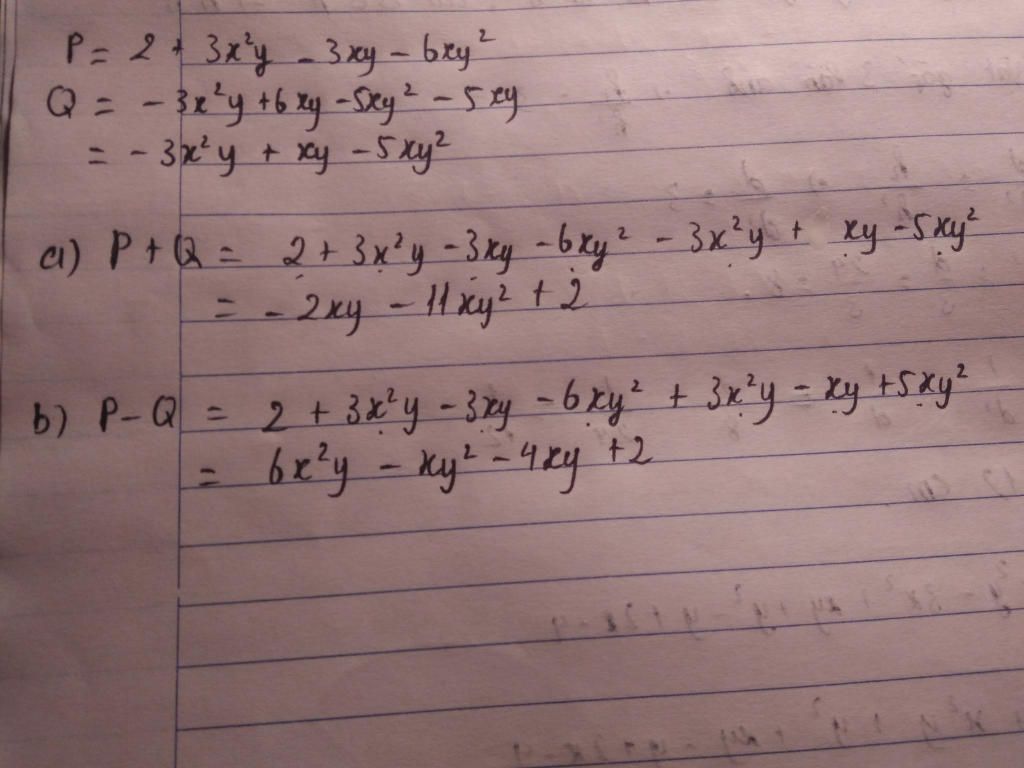 P = 2 + 3x²y - 3xy - 6xy²
Q = - 3x²y + 6xy - 5xy² - 5xy
= - 3x²y + xy - 5xy²
a) P + Q = 2 + 3x²y - 3xy - 6xy² - 3x²y + xy - 5xy²
= - 2xy - 11xy² + 2
b) P - Q = 2 + 3x²y - 3xy - 6xy² + 3x²y - xy + 5xy²
= 6x²y - xy² - 4xy + 2